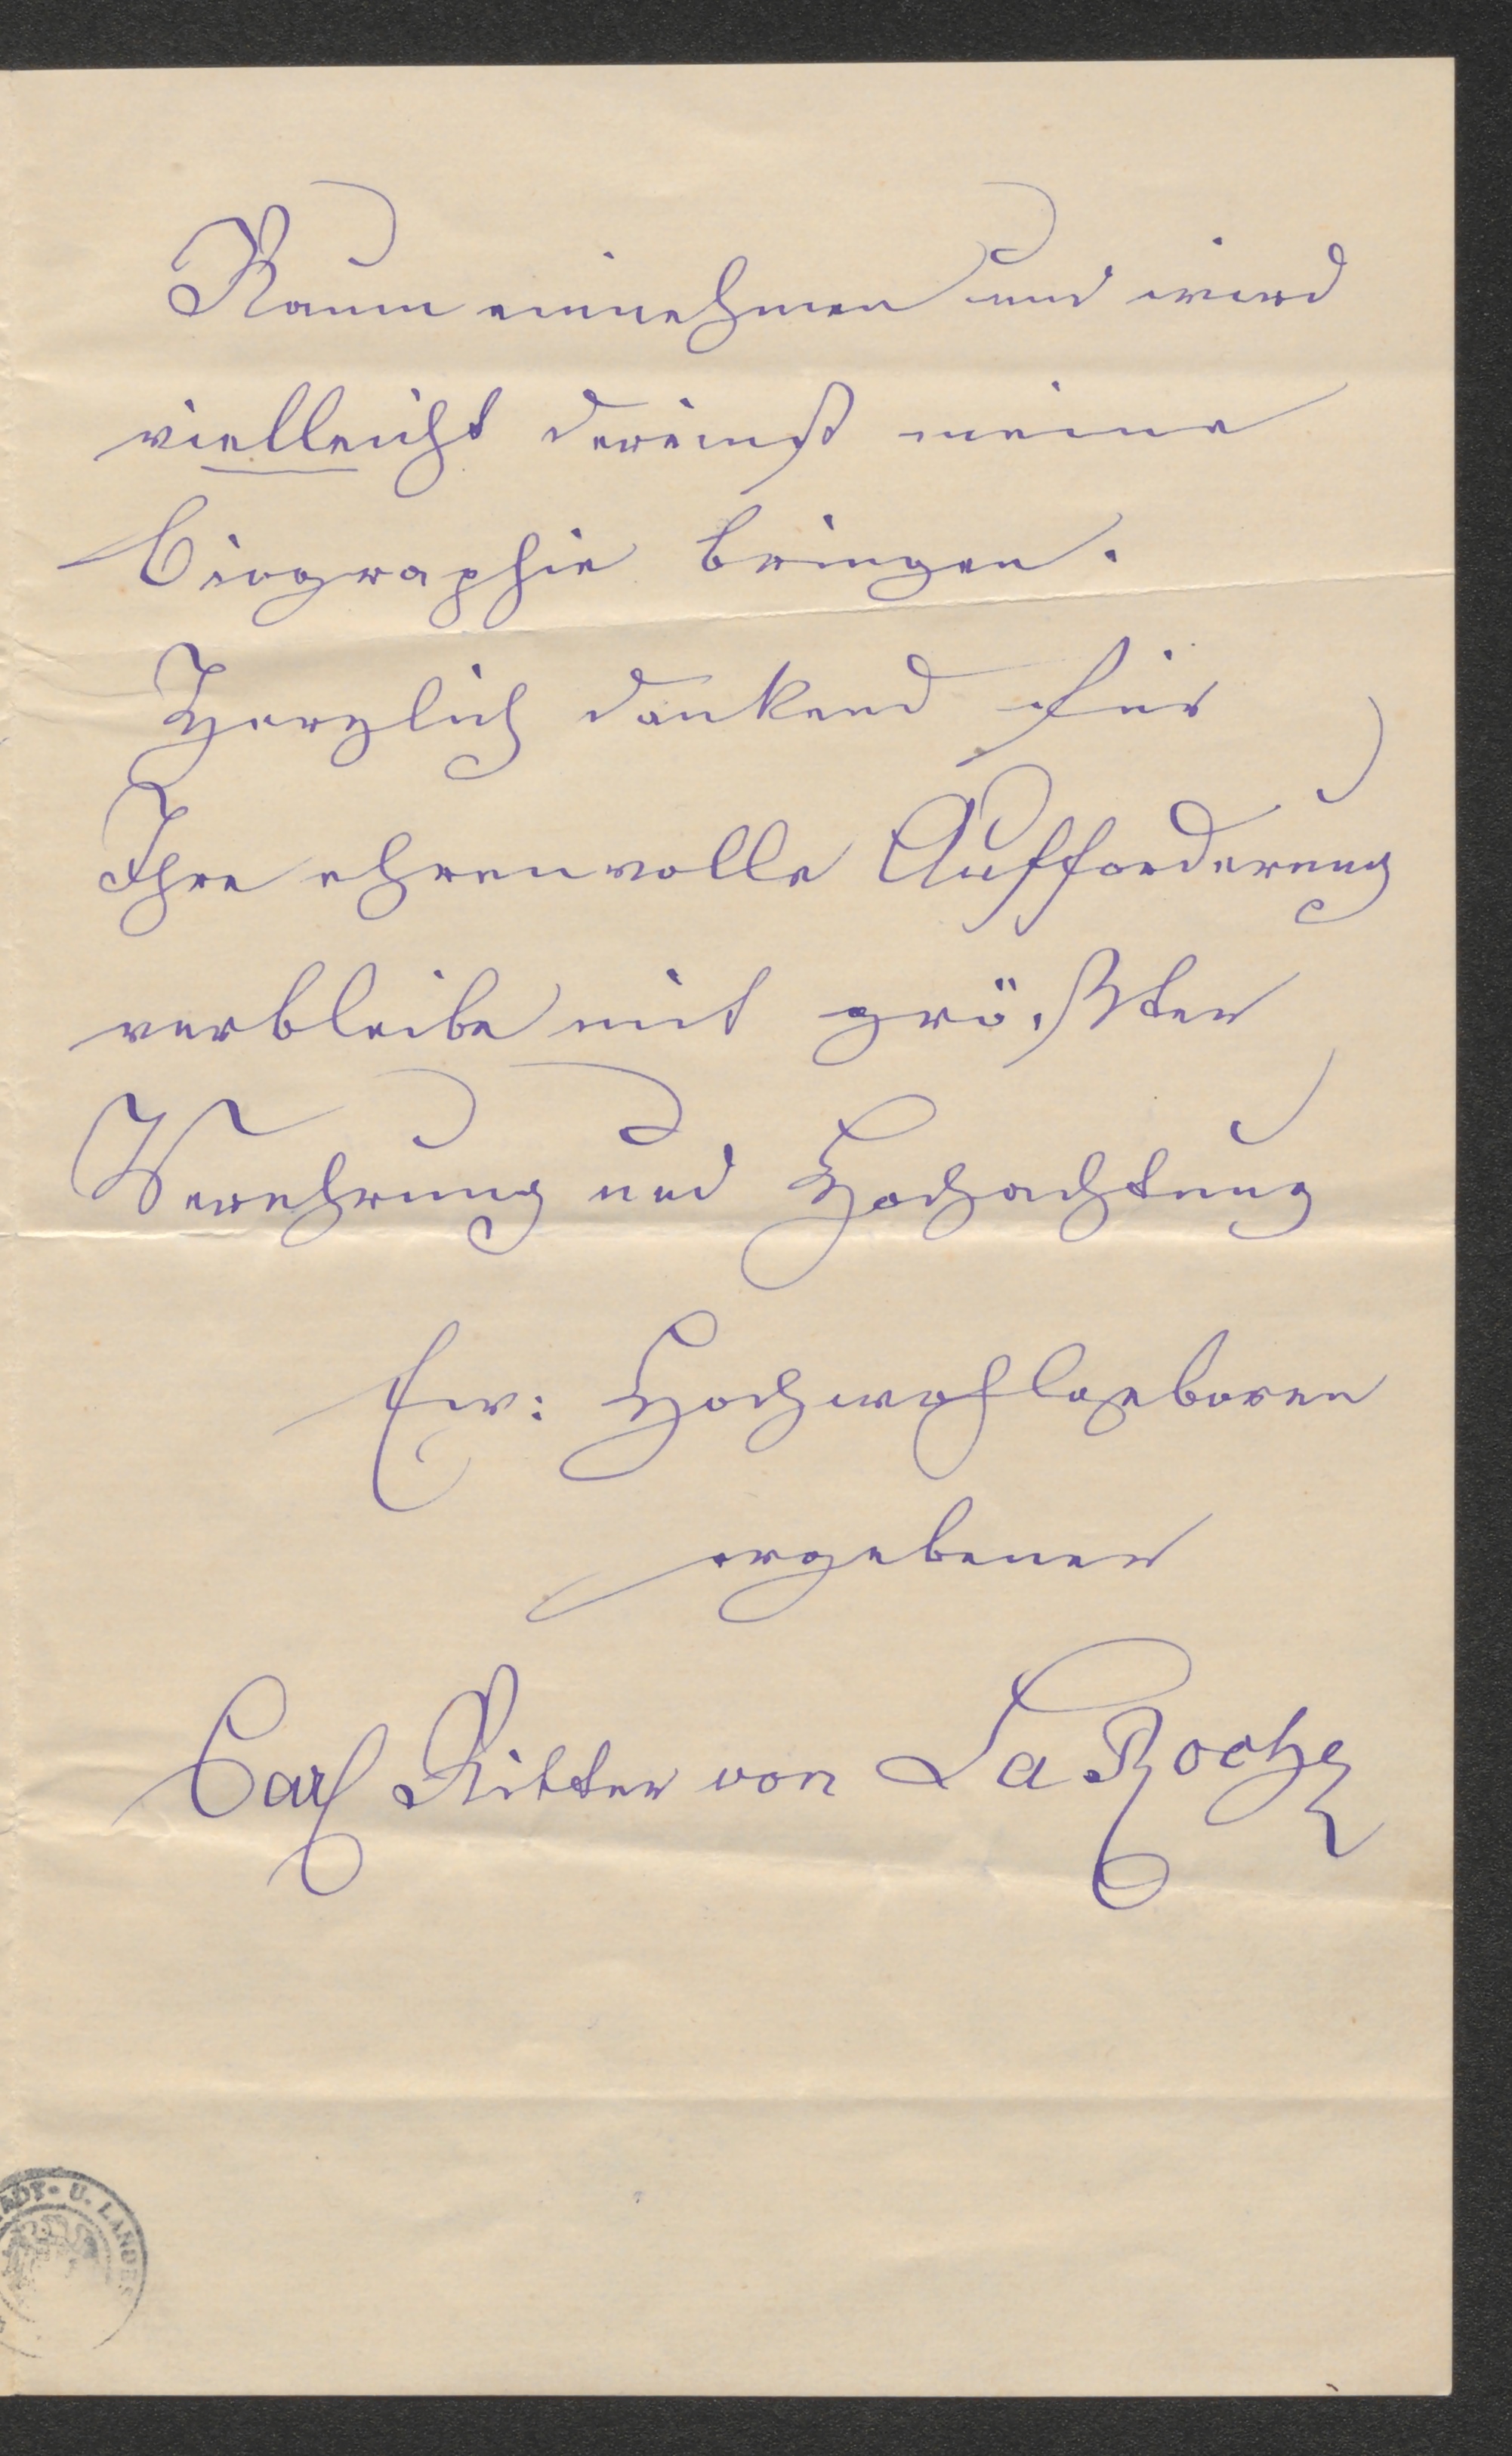 Raum einnehmen und wird
vielleicht dereinst meine
Biographie bringen.
Herzlich dankend für
Ihre ehrenvolle Aufforderung
verbleibe mit größter
Verehrung und Hochachtung
Ew: Hochwohlgeboren
ergebener
Carl Ritter von La Roche
ADT- U. LANDES